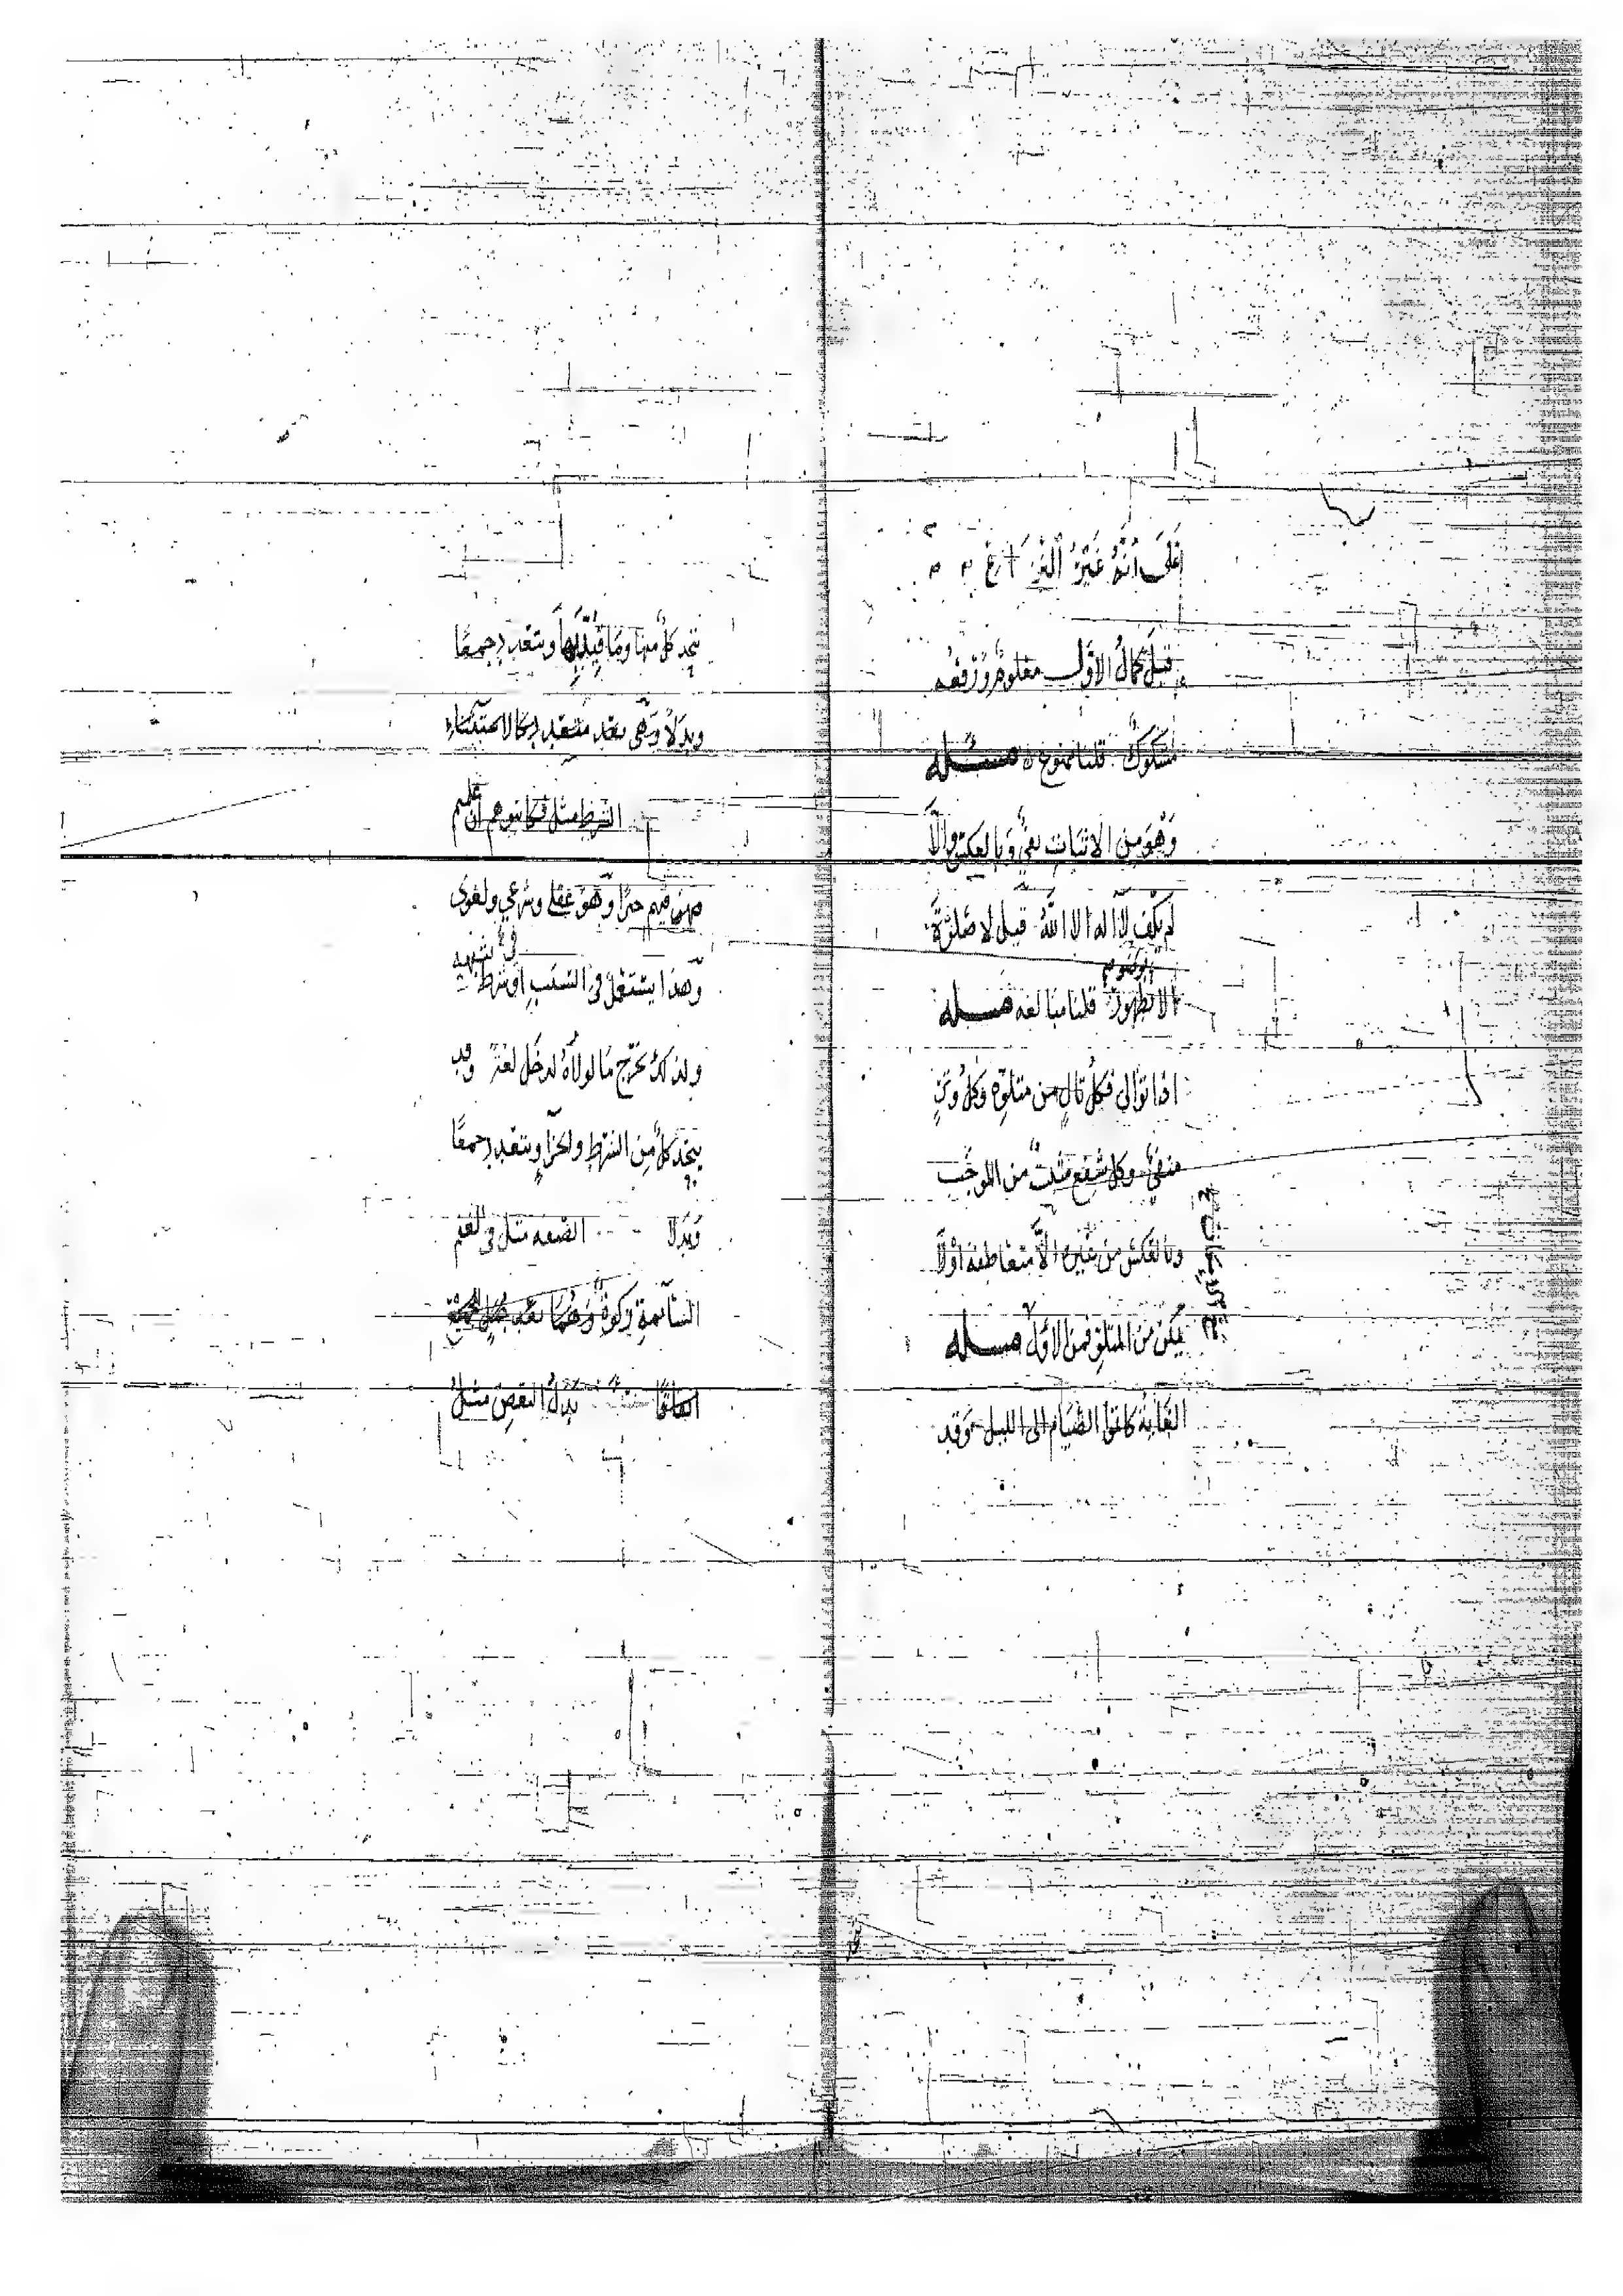 على أنه غير
قيل كمال الأول معلوم ورفعه
مشكوك قلنا ممنوع ه مسئله
وهو من الاثبات نفي وبالعكس والا
لم يكف لا اله الا الله قيل لا صلوة
الا بطهور قلنا مبالغه مسله
اذا توالى فكل تال من متلوه وكل وتر
منفي وكل شفع مثبت من الموجب
وبالعكس من غيره الا متعاطفه أولا
يكن من المتلو فمن الأول مسله
الغايه كاتموا الصيام الى الليل وقد
يتحد كل منها وما قيد بها ويتعدد جمعا
وبدلا وهى بعد متعدد كالاستثناء
الشرط مثل فكاتبوهم ان علمتم
فيهم خيرا وهو عقلي وشرعي ولغوى
وهذا يستعمل فى السبب او شرط
فى شبيه
ولذلك يخرج ما لولاه لدخل لغة وقد
يتحد كل من الشرط والجزاء ويتعدد جمعا
وبدلا الصفه مثل فى الغنم
السائمة زكوة وهما بعد جمل
بدل البعض مثل